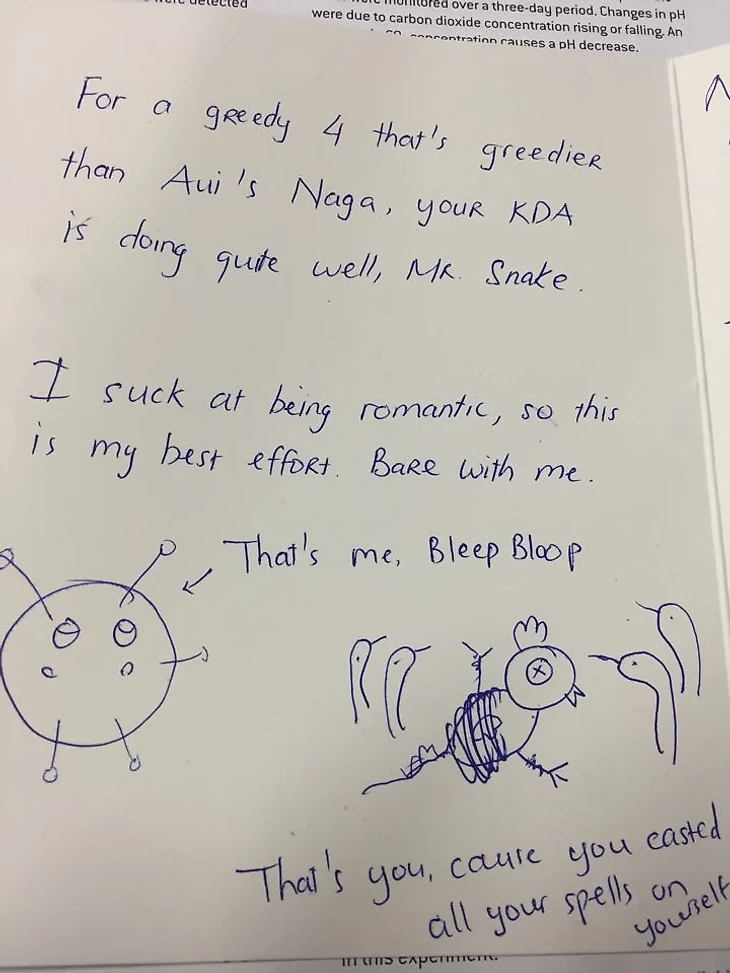 were detected
monitored over a three-day period. Changes in pH
were due to carbon dioxide concentration rising or falling. An
concentration causes a pH decrease.
For a greedy 4 that's greedier
than Aui's Naga, your KDA
is doing quite well, Mr. Snake.
I suck at being romantic, so this
is my best effort. Bare with me.
That's me, Bleep Bloop
That's you, cause you casted
all your spells on
yourself
in this experiment.